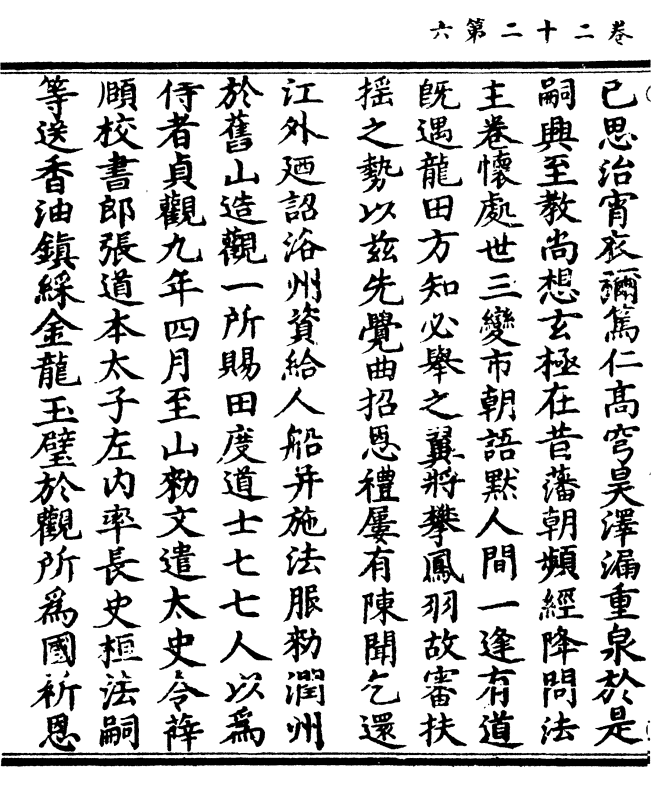 卷二十二第六
已思治宵衣彌篤仁髙穹昊澤漏重泉於是
嗣興至教尚想玄極在昔藩朝頻經降問法
主卷懷處世三變市朝語默人間一逢有道
旣遇龍田方知必舉之翼將攀鳳羽故審扶
揺之勢以兹先覺曲招恩禮屢有陳聞乞還
江外廼詔洛州資給人船并施法服勑潤州
於舊山造觀一所賜田度道士七七人以爲
侍者貞觀九年四月至山勑文遣太史令薛
頤校書郎張道本太子左内率長史桓法嗣
等送香油鎮綵金龍玉璧於觀所爲國祈恩